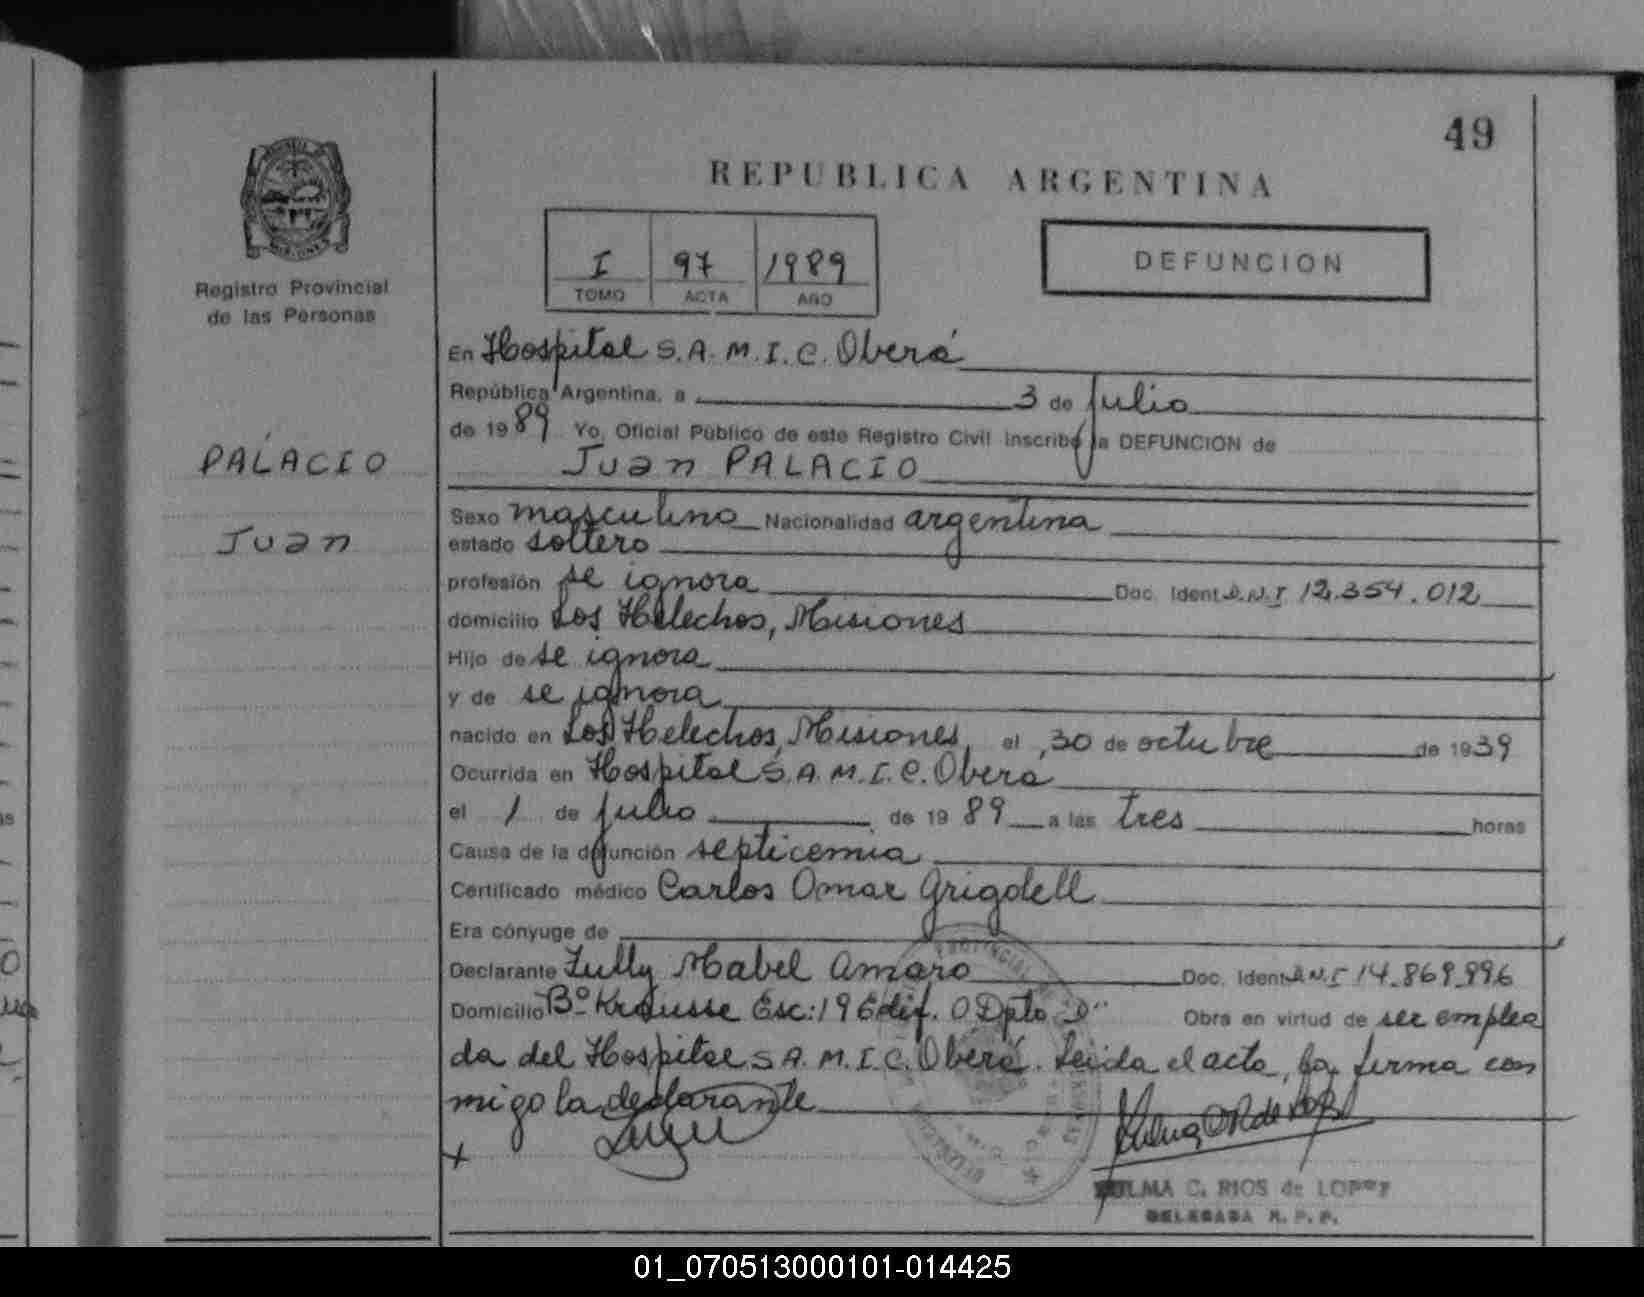 49
REPUBLICA ARGENTINA
I 97 1989
TOMO ACTA AÑO
DEFUNCION
Registro Provincial
de las Personas
PALACIO
Juan
En Hospital S.A.M.I.C. Oberá
República Argentina, a 3 de Julio
de 1989 Yo, Oficial Público de este Registro Civil inscribo la DEFUNCION de
Juan PALACIO
Sexo masculino Nacionalidad argentina
estado soltero
profesión se ignora Doc. Ident D.N.I 12.354.012
domicilio Los Helechos, Misiones
Hijo de se ignora
y de se ignora
nacido en Los Helechos, Misiones, el 30 de octubre de 1939
Ocurrida en Hospital S.A.M.I.C. Oberá
el 1 de julio de 1989 a las tres horas
Causa de la defunción septicemia
Certificado médico Carlos Omar Grigdell
Era cónyuge de
Declarante Lully Mabel Amaro Doc. Ident D.N.I 14.869.996
Domicilio Bº Krausse Esc: 19 Edif. O Dpto "D" Obra en virtud de ser emplea
da del Hospital S.A.M.I.C. Oberá. Leida el acta, la firma con
migo la declarante
ZULMA C. RIOS de LOPEZ
DELEGADA R.P.P.
01_070513000101-014425